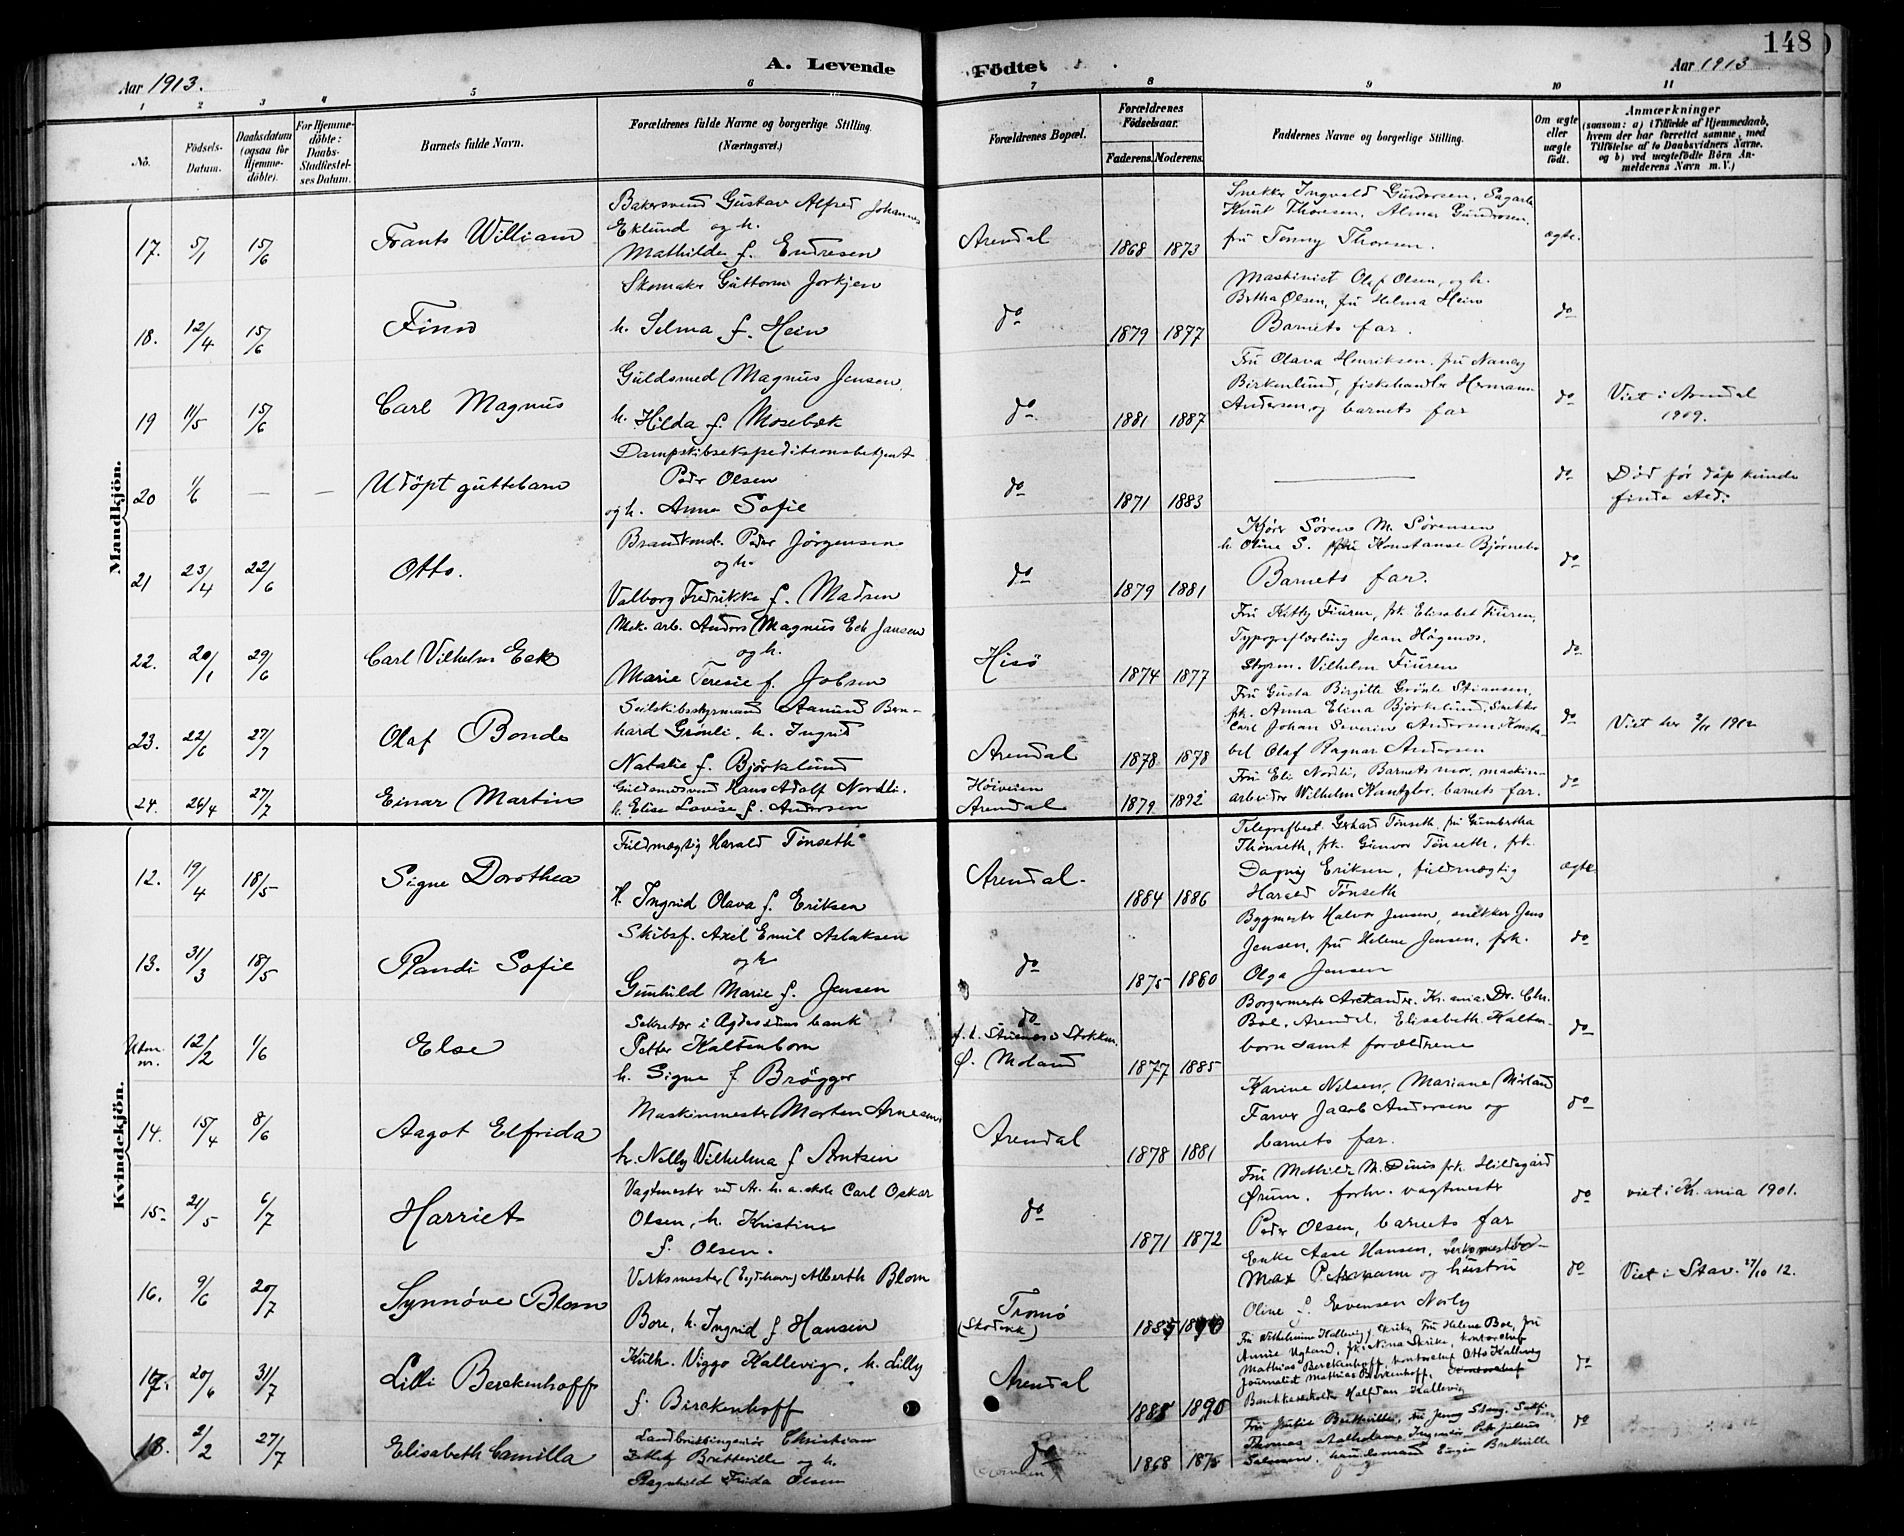 148
Aar 1913.
A. Levende
Födte
Aar 1913
1 2 3 4 5 6 7 8 9 10 11
No.
Födsels-Datum.
Daabsdatum (ogsaa for Hjemme-döbte).
For Hjemme-döbte: Daabs-Stadfæstel-ses Datum.
Barnets fulde Navn.
Forældrenes fulde Navne og borgerlige Stilling.
(Næringsvei.)
Forældrenes Bopæl.
Forældrenes Födselsaar.
Faderens. Moderens.
Faddernes Navne og borgerlige Stilling.
Om ægte eller uægte födt.
Anmærkninger
(saasom: a) i Tilfælde af Hjemmedaab,
hvem der har forrettet samme, med
Tilföielse af to Daabsvidners Navne,
og b) ved uægtefödte Börn An-
melderens Navn m. V.)
Mandkjön.
17. 5/1 15/6 Frants William
Bakersvend Gustav Alfred Johannes
Eklund og h.
Mathilde f. Endresen
Arendal 1868 1873
Snekker Ingvald Gundersen, Sagarb.
Knut Thoresen, Almar Gundersen,
fru Tonny Thoresen.
ægte.
18. 12/4 15/6 Finn
Skomaker Guttorm Jorkjen
h. Selma f. Hein
do 1879 1877
Maskinist Olaf Olsen, og h.
Bertha Olsen, fru Helma Hein
Barnets far.
do
19 11/5 15/6 Carl Magnus
Guldsmed Magnus Jensen,
h. Hilda f. Mosebæk
do 1881 1887
Fru Olava Henriksen, fru Nancy
Birkenlund, fiskehandler Hermann
Andersen og barnets far
do
Viet i Arendal
1909.
20 1/6 — — Udöpt guttebarn
Dampskibsekspeditionsbetjent
Peder Olsen
og h. Anna Sofie
do 1871 1883
do
Död før dåp kunde
finde sted.
21 23/4 22/6 Otto.
Brandkonst. Peder Jörgensen
og h.
Valborg Fredrikke f. Madsen
do 1879 1881
Kjörer Sören M. Sörensen
h. Oline S. fru Konstanse Bjørnebo
Barnets far.
do
22. 20/1 29/6 Carl Vilhelm Eek
Mek. arb. Anders Magnus Eek Jansen
og h.
Marie Teresie f. Jobsen
Hisö 1874 1877
Fru Kitty Fiuren, frk. Elisabet Fiuren,
Typograflærling Jean Högenes,
Styrm. Vilhelm Fiuren
do
23. 22/6 27/7 Olaf Bonde
Seilskibsstyrmand Aanund Bern-
hard Grönli, h. Ingrid
Natalie f. Björklund
Arendal 1878 1878
Fru Gusta Birgitte Grönli Stiansen,
frk. Anna Elina Björklund, Snekker
Carl Johan Severin Andersen, Konsta-
bel Olaf Ragnar Andersen
do
Viet her 2/11 1912
24. 26/4 27/7 Einar Martin
Guldsmedsvend Hans Adolf Nordli.
h. Elise Lovise f. Andersen
Höiveien
Arendal 1879 1892
Fru Eli Nordli, Barnets mor, maskin-
arbeider Wilhelm Kantzler, barnets far.
do
Kvindekjön.
12. 19/4 18/5 Signe Dorothea
Fuldmægtig Harald Tönseth
h. Ingrid Olava f. Eriksen
Arendal. 1884 1886
Telegrafbest. Gerhard Tönseth, fru Gumbertha
Thönseth, frk. Gunvor Tönseth, frk.
Dagny Eriksen, fuldmægtig
Harald Tönseth
ægte
13. 31/3 18/5 Randi Sofie
Skibsf. Axel Emil Aslaksen
og h
Gunhild Marie f. Jensen
do 1875 1880
Bygmester Halvor Jensen, snekker Jens
Jensen, fru Helene Jensen, frk.
Olga Jensen
do
Uten nr. 12/2 1/6 Else
Sekretær i Agdesidens bank
Petter Kaltenborn
h. Signe f Brögger
do
f. t. Stuenes i Stokken
Ø. Moland 1877 1885
Borgermester Arctander, Kr.ania. Dr. Chr.
Boe, Arendal, Elisabeth Kalten-
born samt forældrene
do
14. 15/4 8/6 Aagot Elfrida
Maskinmester Morten Arnesen
h. Nelly Vilhelma f Arntsen
Arendal 1878 1881
Karine Nilsen, Mariane Mörland
Farver Jacob Andersen og
barnets far.
do
15. 21/5 6/7 Harriet
Vagtmester ved Ar. h. a. skole Carl Oskar
Olsen, h. Kristine
f. Olsen.
do 1871 1872
Fru Mathilde M. Dinis frk Hildegard
Ørum, forhv. vagtmester
Peder Olsen, barnets far
do
viet i Kr.ania 1901.
16. 9/6 20/7 Synnöve Blom
Verksmester (Eydehavn) Alberth Blom
Bore, h. Ingrid f Hansen
Tromö 1885 1890
Enke Aase Hansen,
Max og hustru
Oline f. Evensen Norby
do
Viet i Stav. 27/10 12.
17. 20/6 31/7 Lilli Berckenhoff
Kuth. Viggo Kallevig, h. Lilly
f. Birckenhoff
Arendal 1885 1890
Fru Vilhelmine Kallevig f. Skrike, Fru Helene Boe, fru
Annie Ugland, frk. Nina Skrike, kontorchef
Mathias Berckenhoff, kontorchef Otto Kallevig
Journalist Mathias Berckenhoff,
Bankkasserer Halfdan Kallevig
do
18. 2/2 27/7 Elisabeth Camilla
Landbruksingeniör Christian
Bretteville og h.
Ragnhild Frida Olsen
do 1868 1875
Fru Julie Bretteville, fru Jenny Stang,
Thomas Ingeniör
do